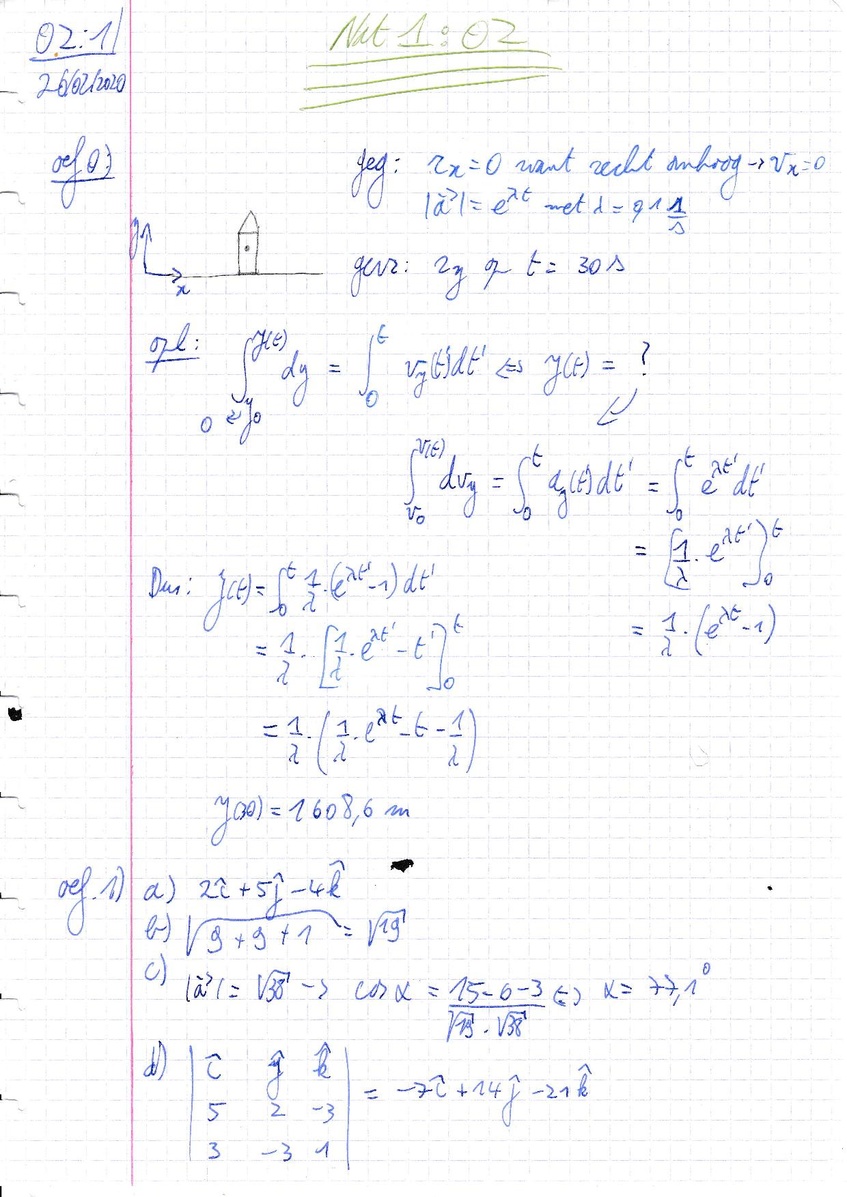 02:1
Nat 1: 02
26/02/2020
oef 0)
geg: r_x = 0 want recht omhoog → v_x = 0
|a⃗| = e^{λt} met λ = 0,1 1/s
y
x
gevr: r_y op t = 30 s
opl: ∫_{0 ← y_0}^{y(t)} dy = ∫_0^t v_y(t')dt' ⇔ y(t) = ?
∫_{v_0}^{v(t)} dv_y = ∫_0^t a_y(t')dt' = ∫_0^t e^{λt'} dt'
= [1/λ · e^{λt'}]_0^t
= 1/λ · (e^{λt} - 1)
Dus: y(t) = ∫_0^t 1/λ · (e^{λt'} - 1) dt'
= 1/λ · [1/λ · e^{λt'} - t']_0^t
= 1/λ · (1/λ · e^{λt} - t - 1/λ)
y(30) = 1608,6 m
oef. 1) a) 2î + 5ĵ - 4k̂
b) √(9 + 9 + 1) = √19
c) |a⃗| = √38 → cos α = (15 - 6 - 3)/(√19 · √38) ⇔ α = 77,1°
d) | î ĵ k̂ |
| 5 2 -3 | = -7î + 14ĵ - 21k̂
| 3 -3 1 |